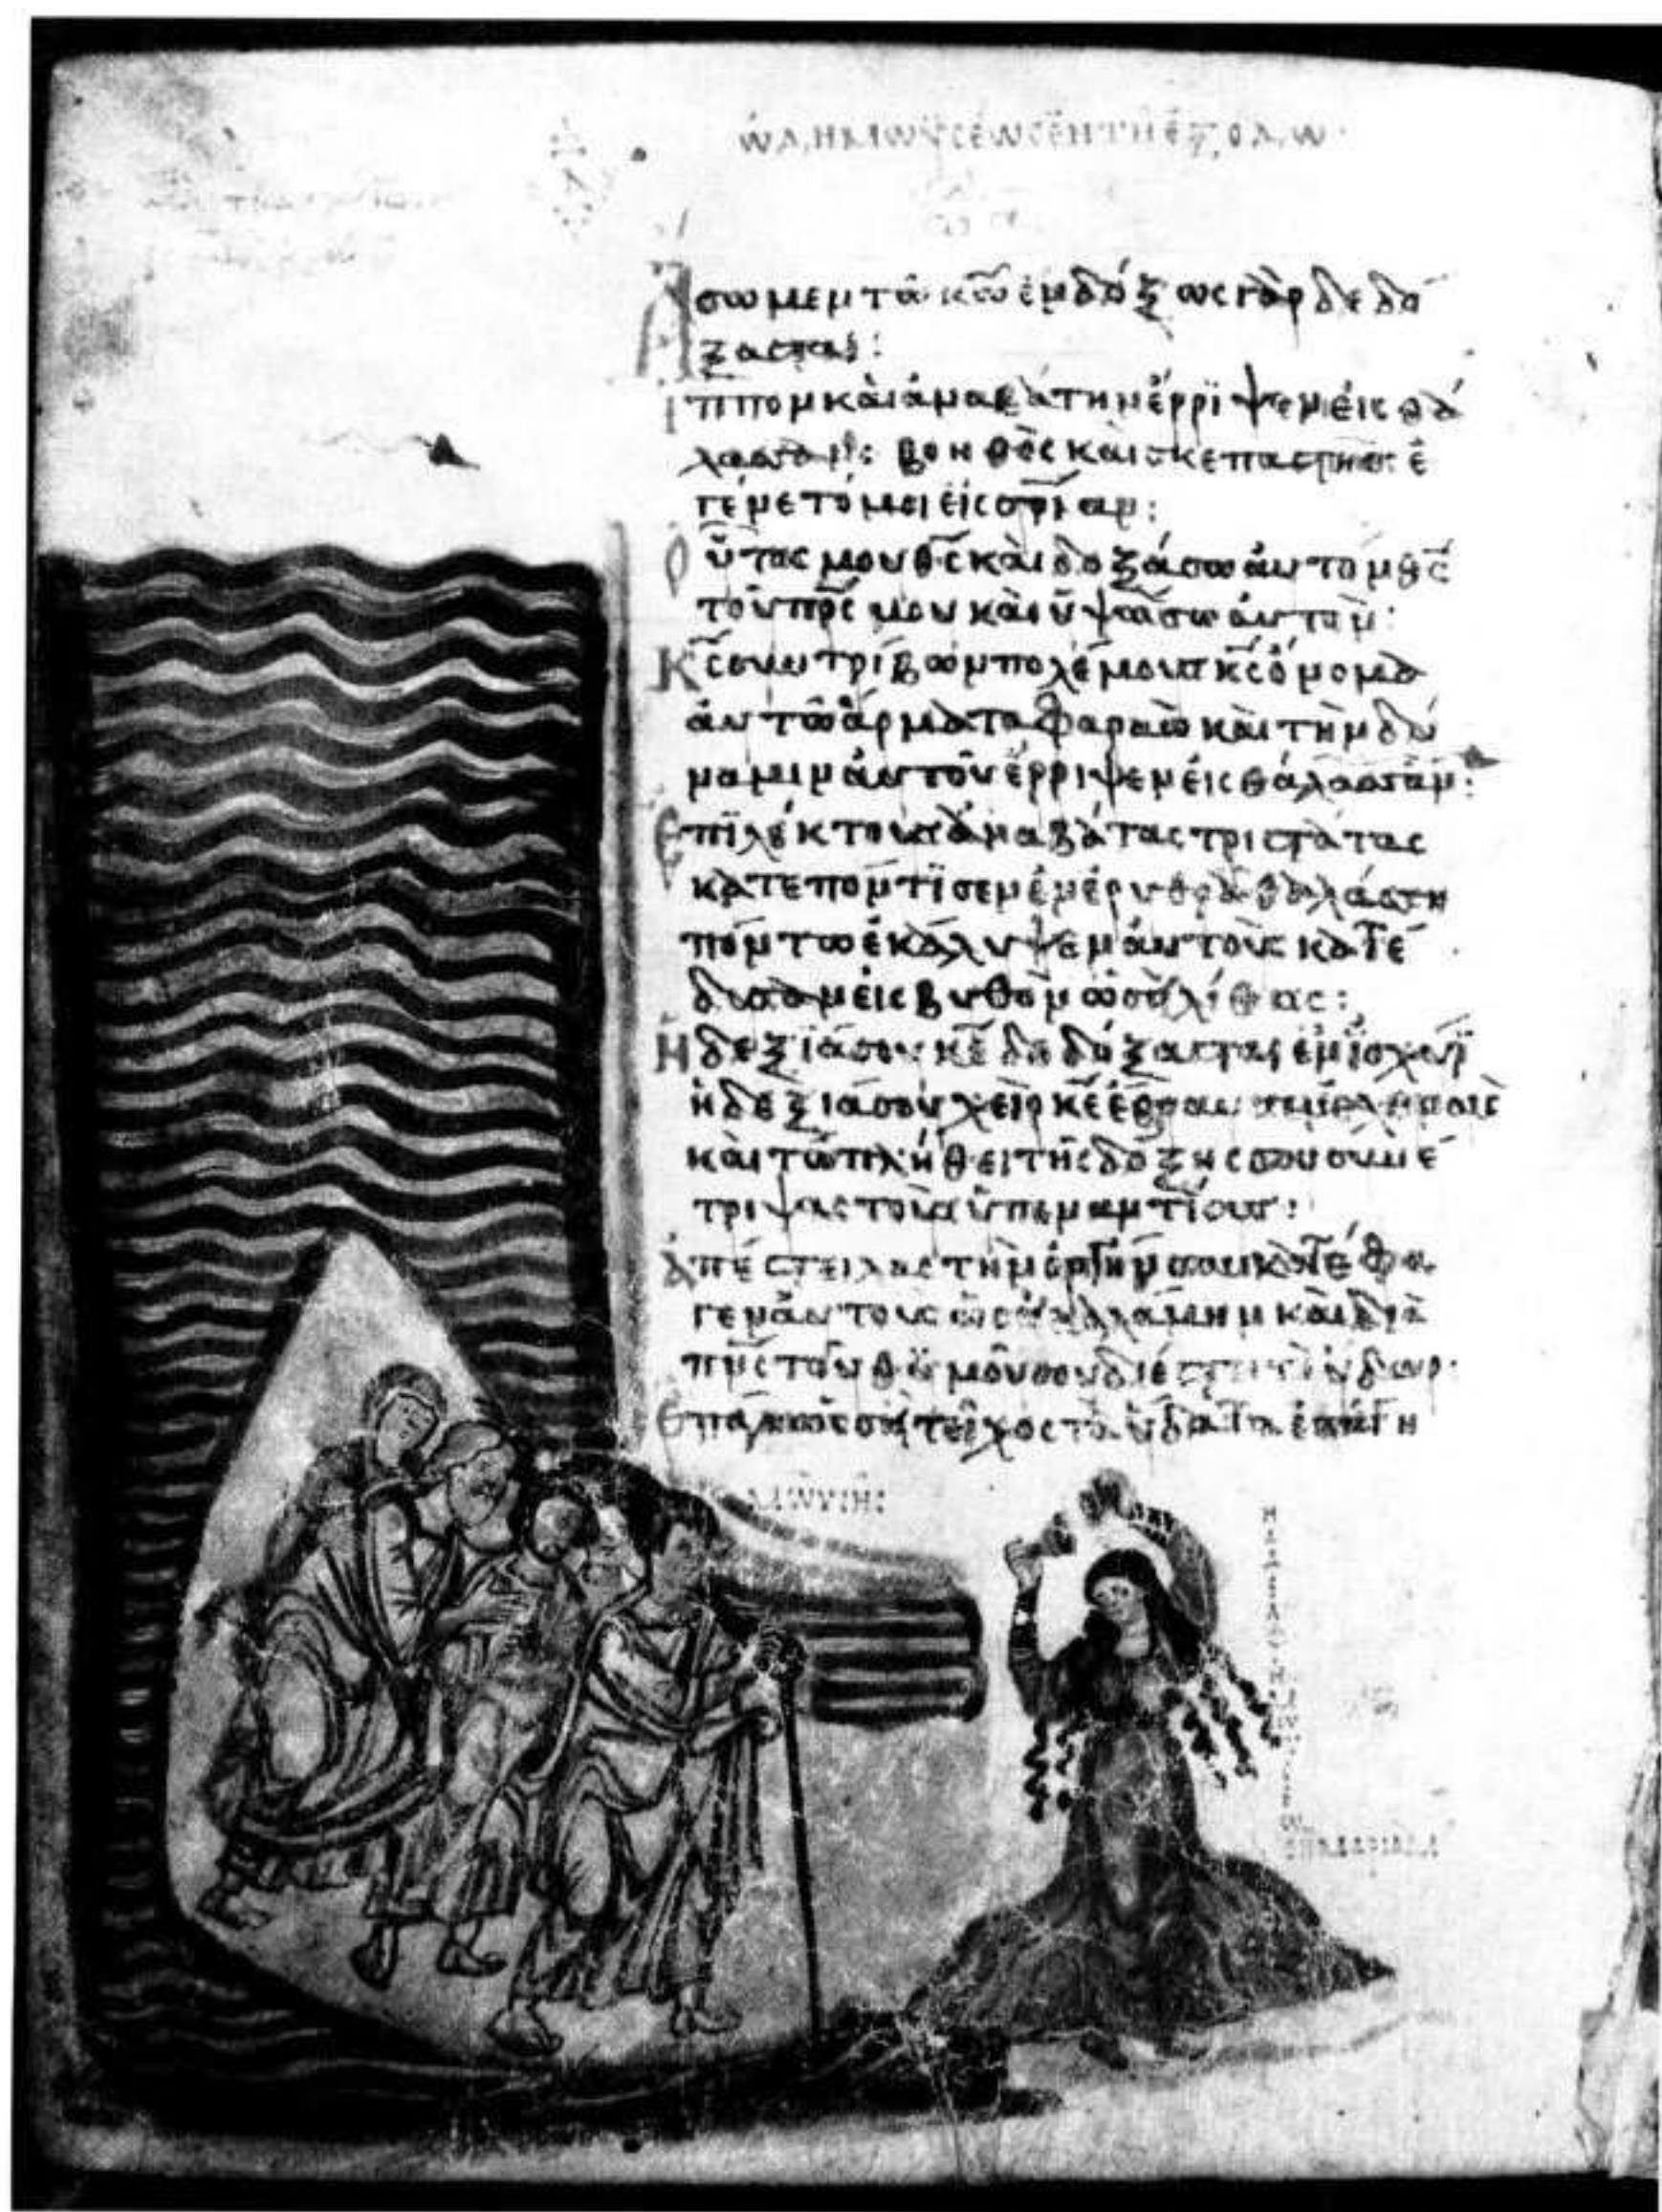 ᾠδὴ Μωϋσέως ἐν τῇ ἐξόδῳ
Ἄσωμεν τῶ κω ἐνδόξως γὰρ δεδό
ξασται:
ἵππον καὶ ἀναβάτην ἔρριψεν εἰς θά
λασσαν: βοηθὸς καὶ σκεπαστὴς ἐ
γένετό μοι εἰς σρίαν:
οὗτός μου θς καὶ δοξάσω αὐτόν θς
τοῦ πρς μου καὶ ὑψώσω αὐτόν:
Κς συντρίβων πολέμους κς ὄνομα
αὐτῶ ἅρματα φαραὼ καὶ τὴν δύ
ναμιν αὐτοῦ ἔρριψεν εἰς θάλασσαν:
Ἐπιλέκτους ἀναβάτας τριστάτας
κατεπόντισεν ἐν ἐρυθρᾶ θαλάσση
πόντω ἐκάλυψεν αὐτούς κατέ
δυσαν εἰς βυθὸν ὡσεὶ λίθος:
Ἡ δεξιά σου κε δεδόξασται ἐν ἰσχύϊ
ἡ δεξιά σου χεὶρ κε ἔθραυσεν ἐχθρούς
καὶ τῶ πλήθει τῆς δόξης σου συνέ
τριψας τοὺς ὑπεναντίους:
Ἀπέστειλας τὴν ὀργήν σου κατέφα
γεν αὐτοὺς ὡς καλάμην καὶ διὰ
πνς τοῦ θυμοῦ σου διέστη τὸ ὕδωρ.
Ἐπάγη ὡσεὶ τεῖχος τὰ ὕδατα ἐπάγη
ΜΩΥΣΗΣ
Η ΑΔΕΛΦΗ ΜΩΥΣΕΩΣ
Η ΜΑΡΙΑΜ